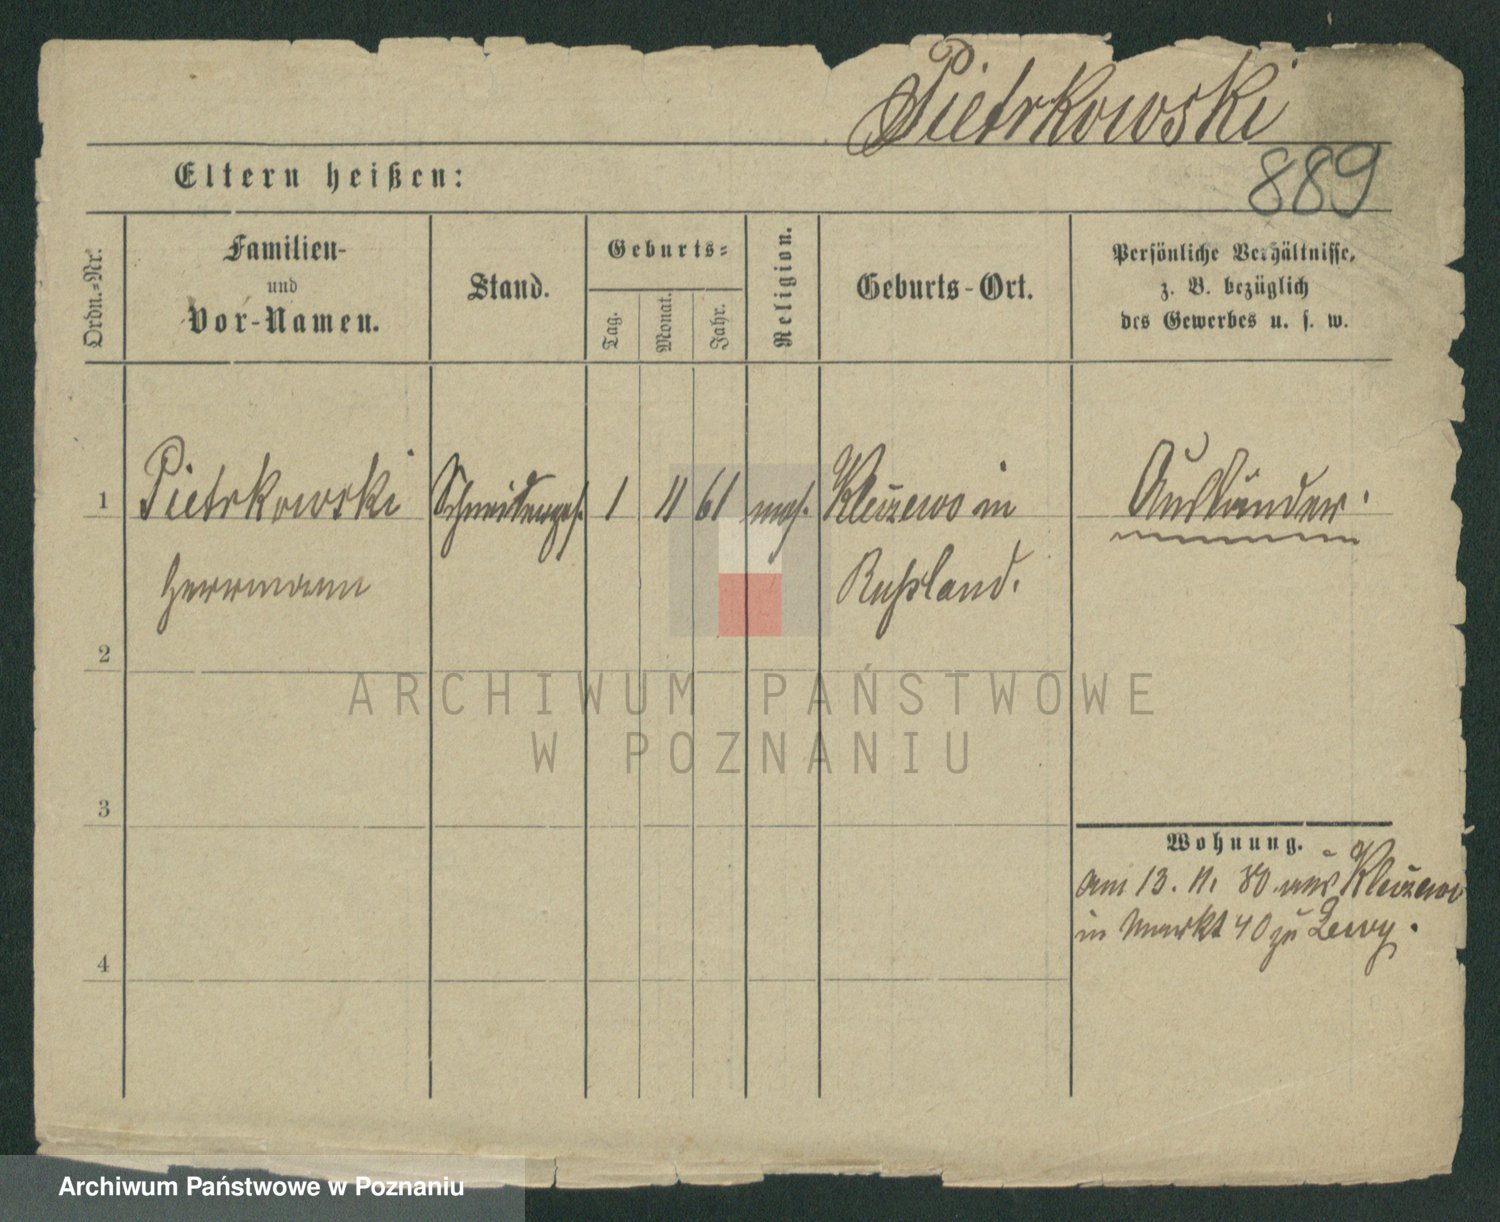 Pietrkowski
889
Eltern heißen:
Ordn.-Nr.
Familien-
und
Vor-Namen.
Stand.
Geburts-
Tag.
Monat.
Jahr.
Religion.
Geburts-Ort.
Persönliche Verhältnisse,
z. B. bezüglich
des Gewerbes u. s. w.
1 Pietrkowski Schneiderges. 1 11 61 mos. Kleczewo in Ausländer.
Herrmann Russland.
2
3
4
Wohnung.
am 13. 11. 80 aus Kleczewo
in Markt 40 zu Lewy.
ARCHIWUM PAŃSTWOWE
W POZNANIU
Archiwum Państwowe w Poznaniu